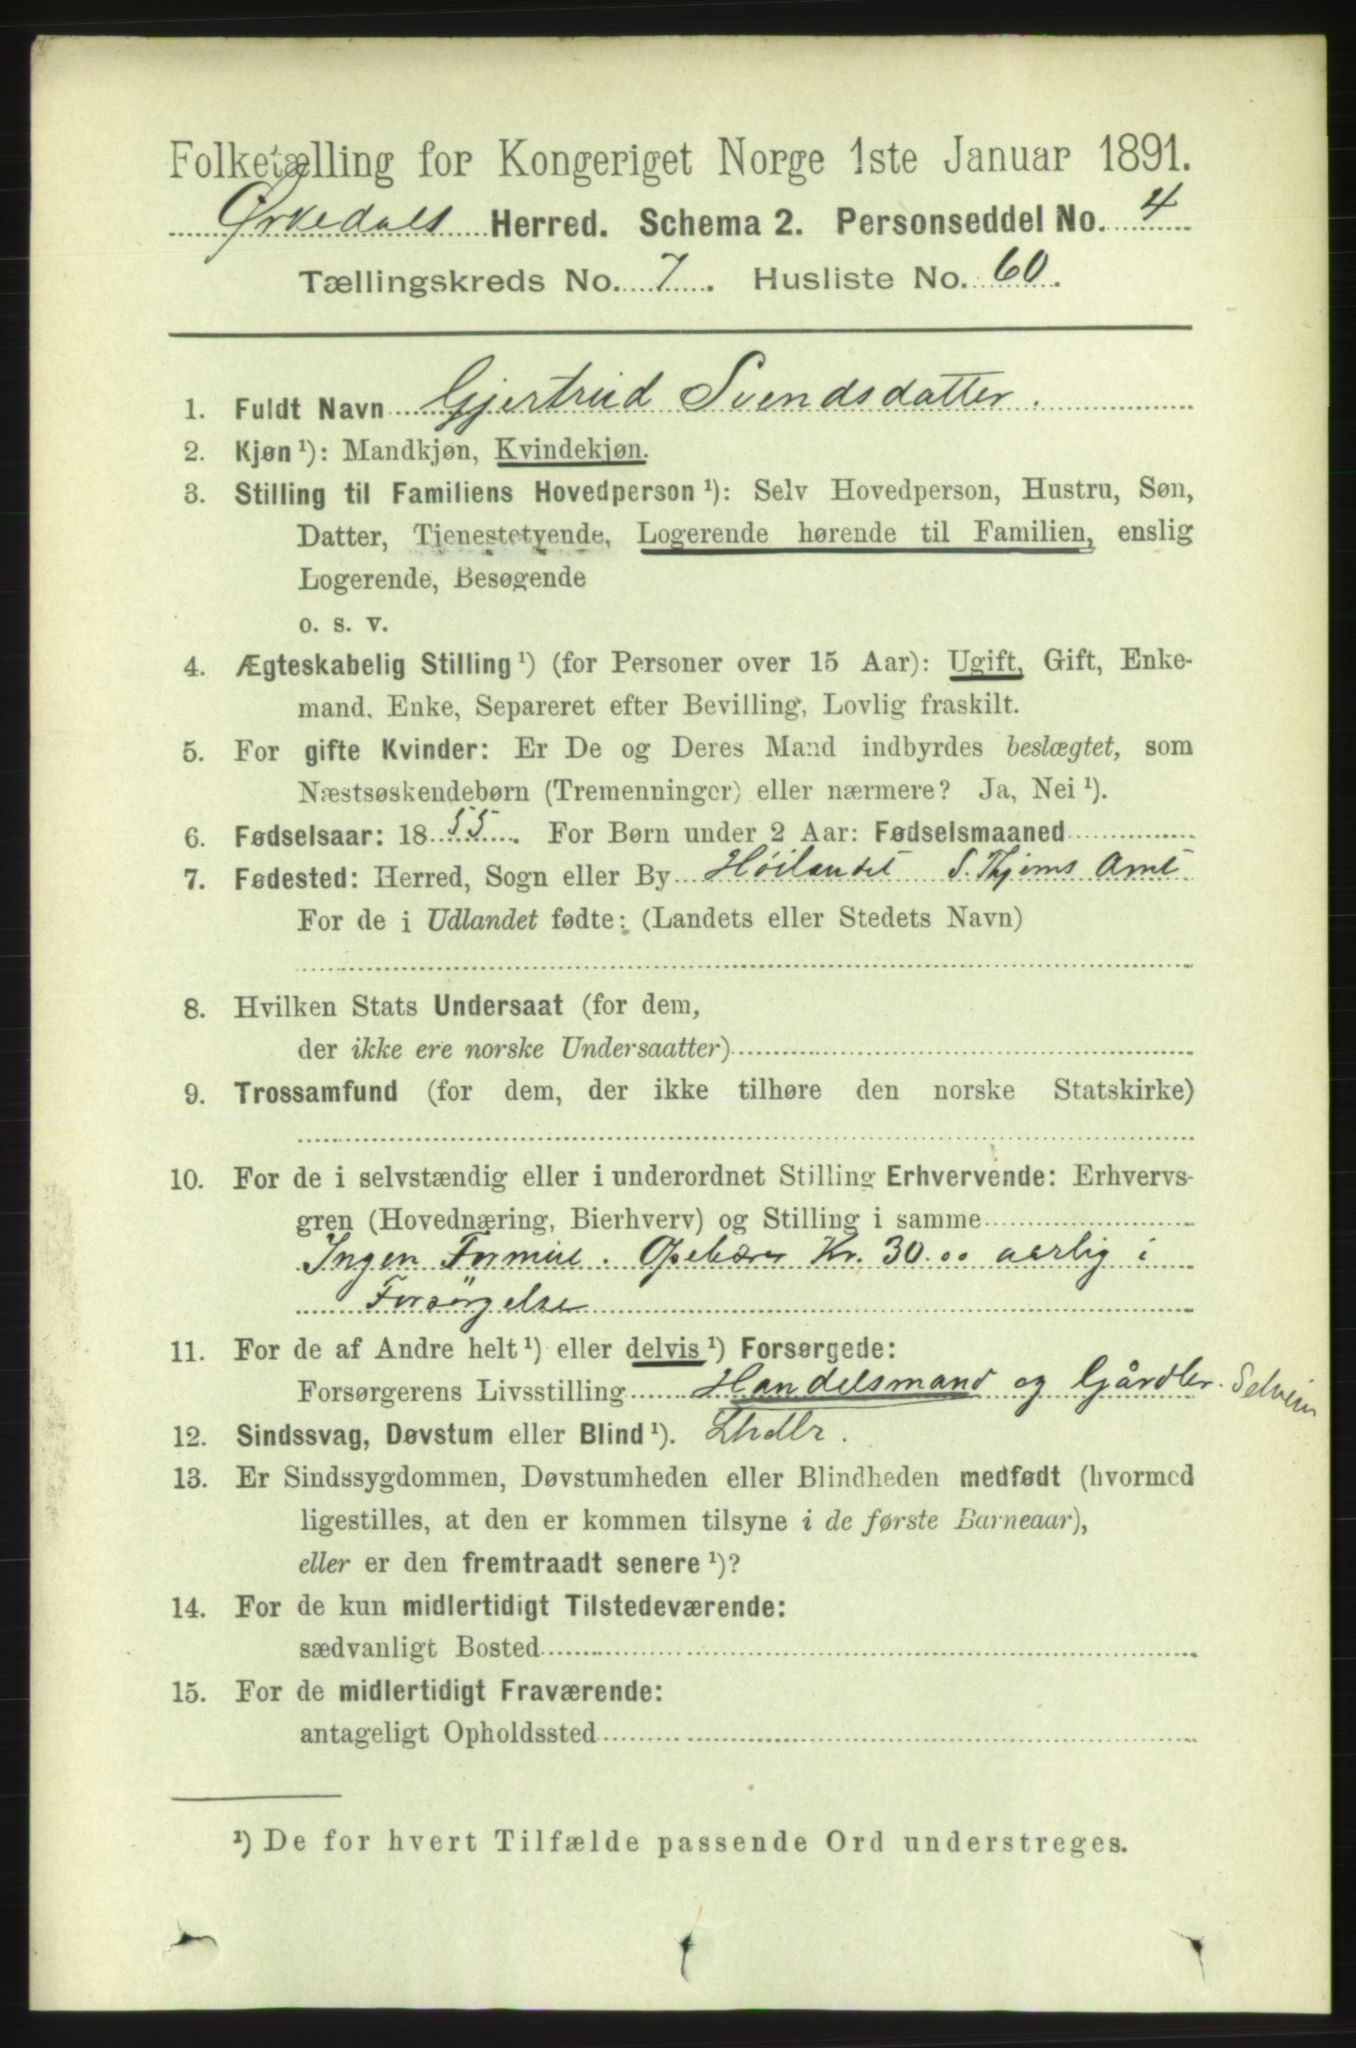 Folketælling for Kongeriget Norge 1ste Januar 1891.
Ørkedals Herred. Schema 2. Personseddel No. 4
Tællingskreds No. 7. Husliste No. 60.
1. Fuldt Navn Gjertrud Svendsdatter.
2. Kjøn ¹): Mandkjøn, Kvindekjøn.
3. Stilling til Familiens Hovedperson ¹): Selv Hovedperson, Hustru, Søn,
Datter, Tjenestetyende, Logerende hørende til Familien, enslig
Logerende, Besøgende
o. s. v.
4. Ægteskabelig Stilling ¹) (for Personer over 15 Aar): Ugift, Gift, Enke-
mand, Enke, Separeret efter Bevilling, Lovlig fraskilt.
5. For gifte Kvinder: Er De og Deres Mand indbyrdes beslægtet, som
Næstsøskendebørn (Tremenninger) eller nærmere? Ja, Nei ¹).
6. Fødselsaar: 1855. For Børn under 2 Aar: Fødselsmaaned
7. Fødested: Herred, Sogn eller By Høilandet S. Thjems Amt
For de i Udlandet fødte: (Landets eller Stedets Navn)
8. Hvilken Stats Undersaat (for dem,
der ikke ere norske Undersaatter)
9. Trossamfund (for dem, der ikke tilhøre den norske Statskirke)
10. For de i selvstændig eller i underordnet Stilling Erhvervende: Erhvervs-
gren (Hovednæring, Bierhverv) og Stilling i samme
Ingen Formue. Opebærer Kr. 30.00 aarlig i
Forsørgelse
11. For de af Andre helt ¹) eller delvis ¹) Forsørgede:
Forsørgerens Livsstilling Handelsmand og Gårdbr. Selveier
12. Sindssvag, Døvstum eller Blind ¹).
13. Er Sindssygdommen, Døvstumheden eller Blindheden medfødt (hvormed
ligestilles, at den er kommen tilsyne i de første Barneaar),
eller er den fremtraadt senere ¹)?
14. For de kun midlertidigt Tilstedeværende:
sædvanligt Bosted
15. For de midlertidigt Fraværende:
antageligt Opholdssted
¹) De for hvert Tilfælde passende Ord understreges.